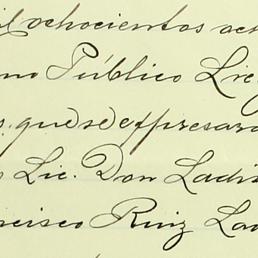 il ochocientos och
ano Público Lic
s. que se espresará
Lic. Don Ladis
ncisco Ruiz La